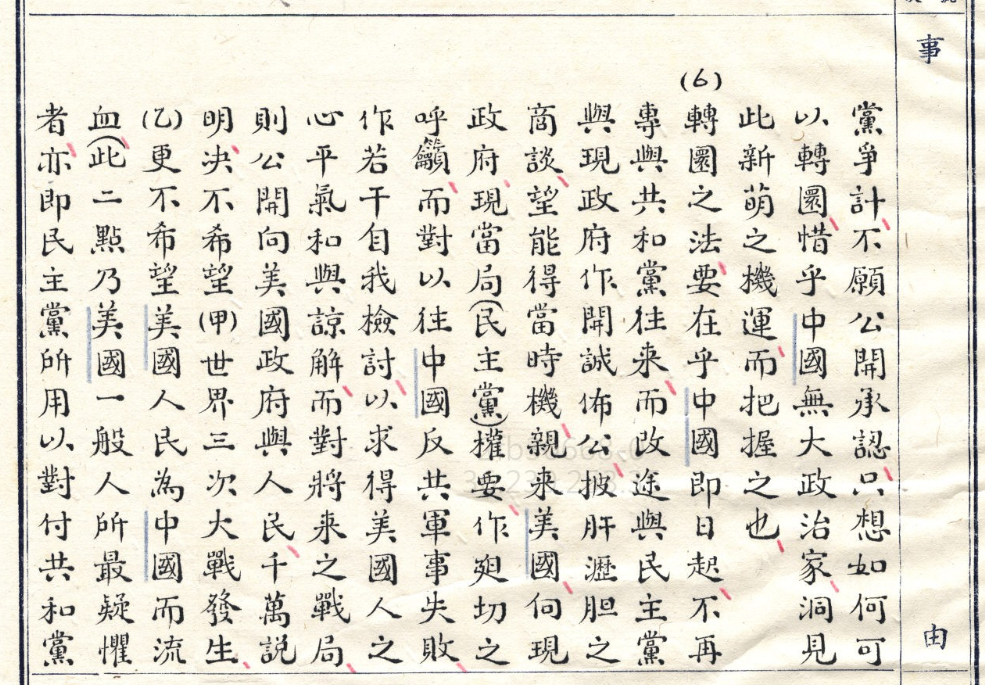 事
由
黨爭計不願公開承認只想如何可
以轉圜惜乎中國無大政治家洞見
此新萌之機運而把握之也
(6)
轉圜之法要在乎中國即日起不再
專與共和黨往來而改途與民主黨
與現政府作開誠佈公披肝瀝胆之
商談望能得當時機親來美國向現
政府現當局(民主黨)權要作廹切之
呼籲而對以往中國反共軍事失敗
作若干自我檢討以求得美國人之
心平氣和與諒解而對將來之戰局
則公開向美國政府與人民千萬説
明决不希望(甲)世界三次大戰發生
(乙)更不希望美國人民為中國而流
血(此二點乃美國一般人所最疑懼
者亦即民主黨所用以對付共和黨